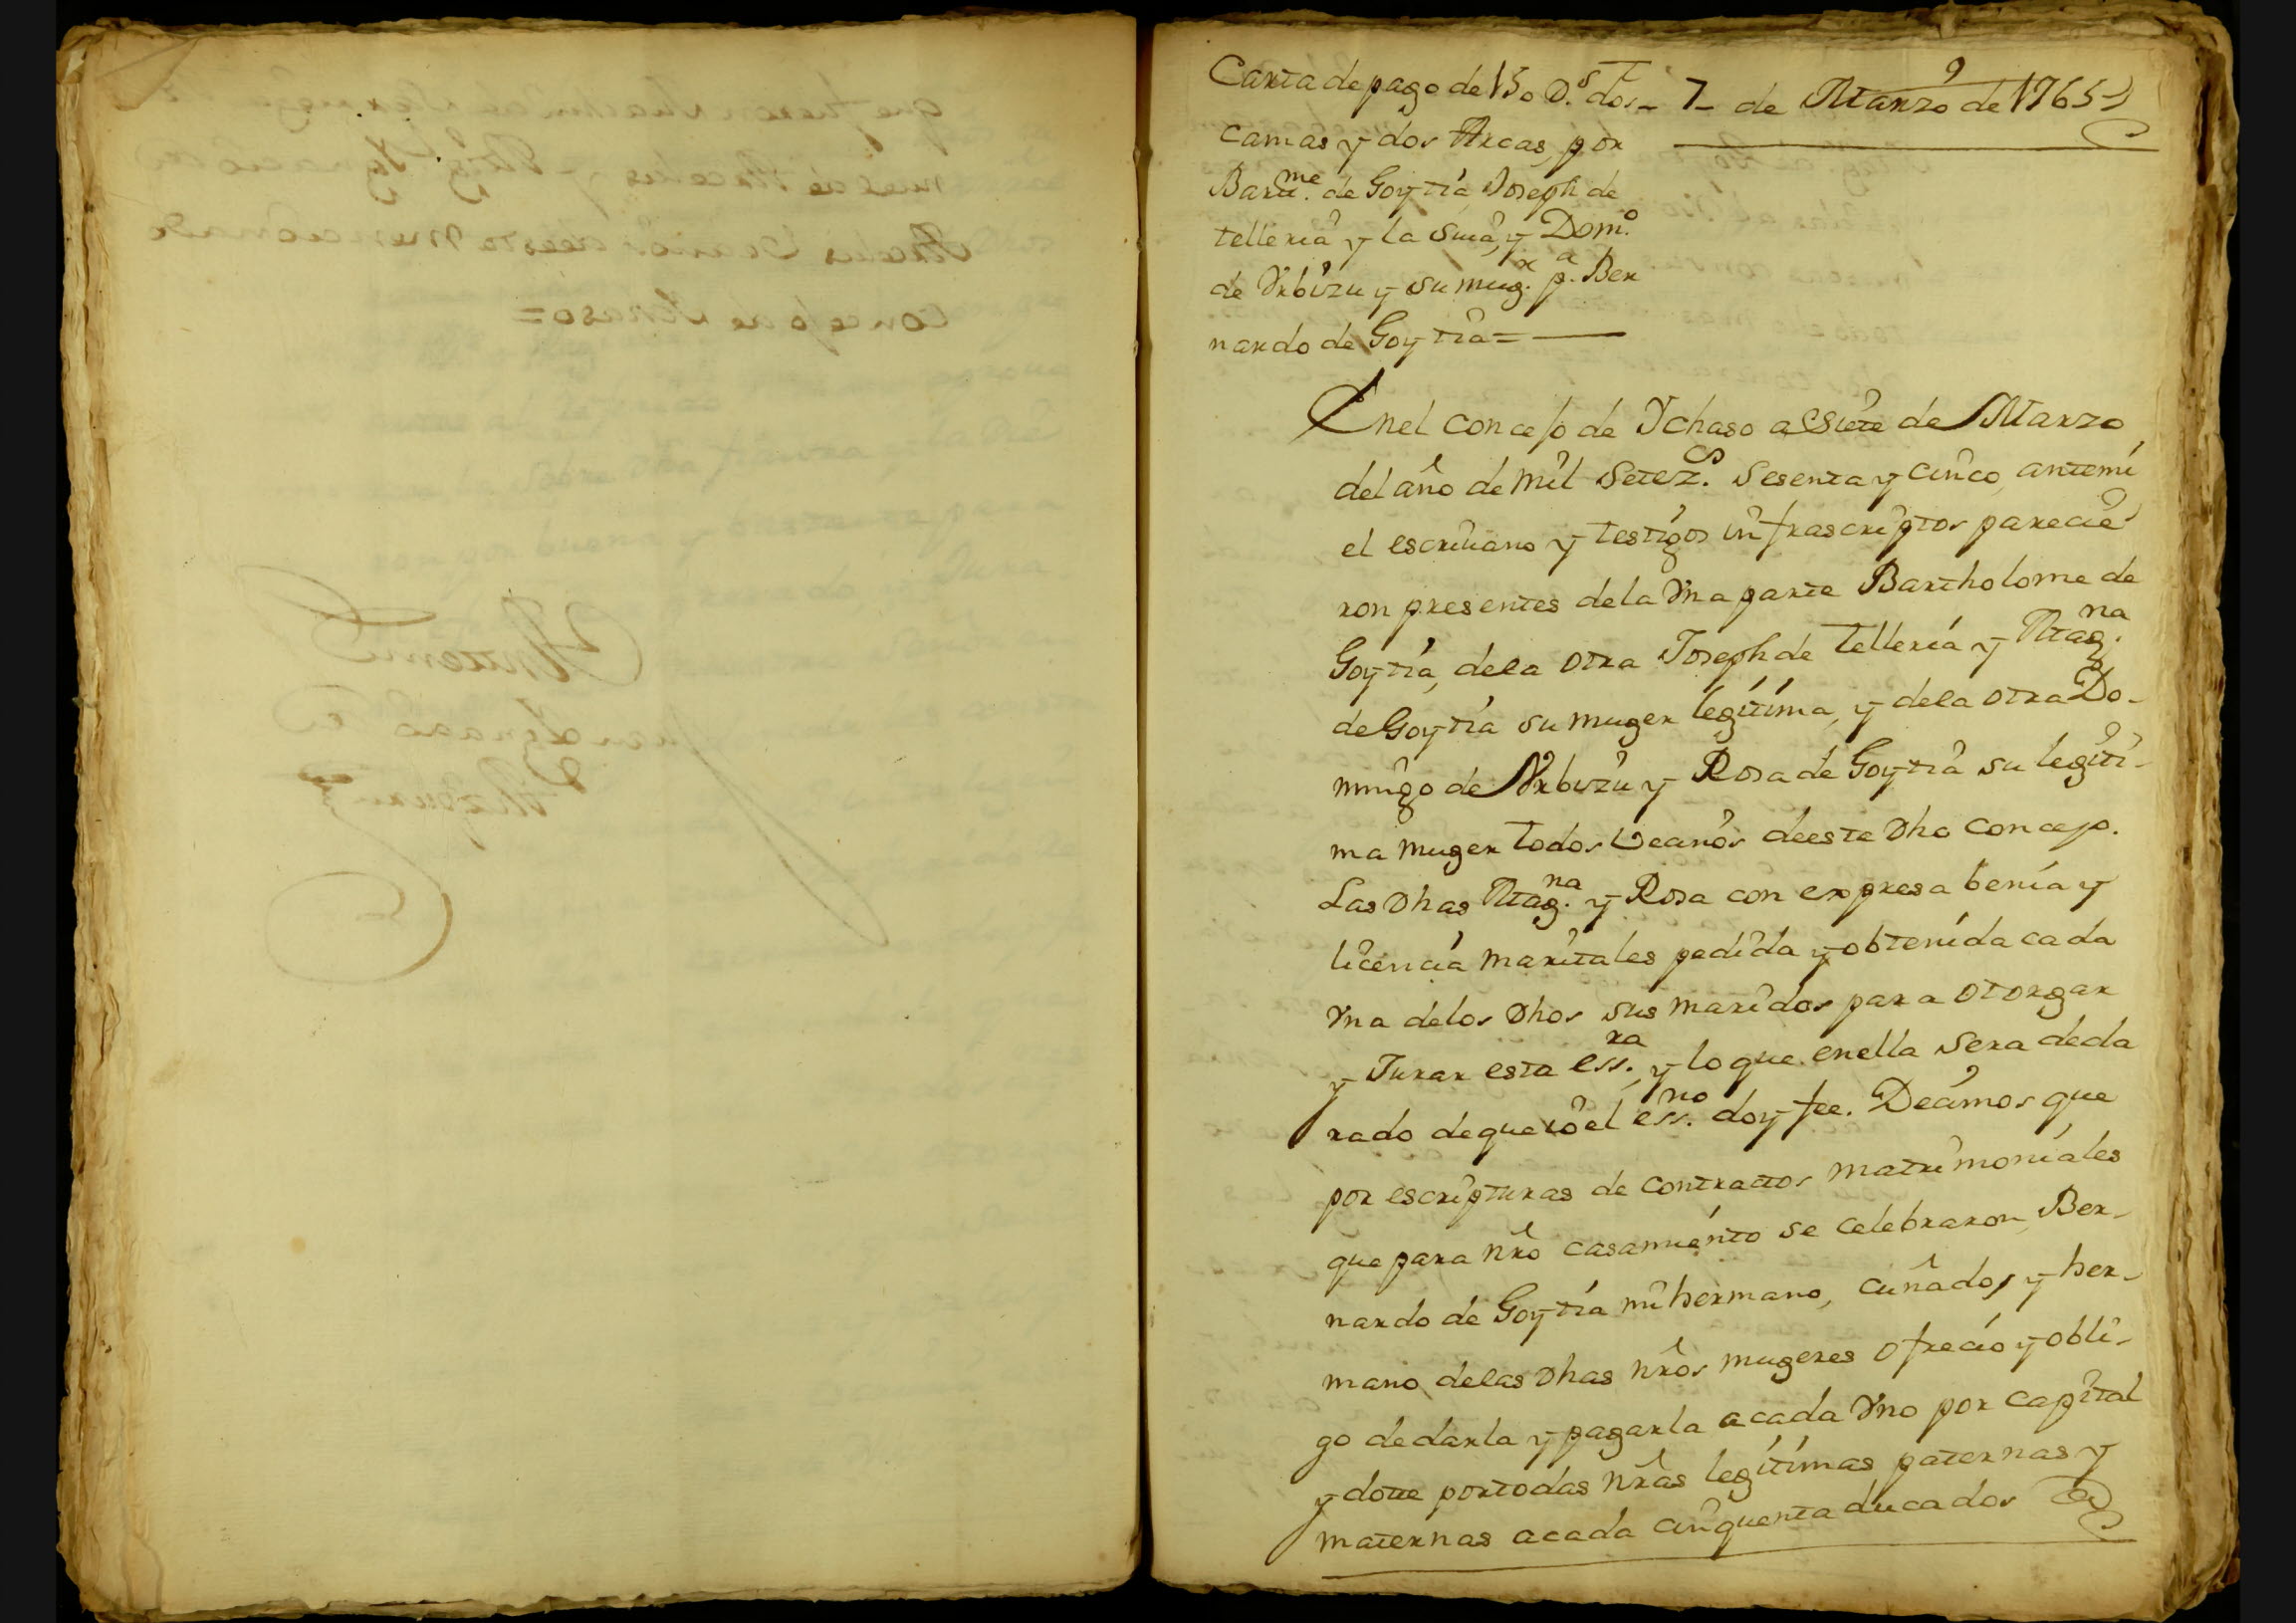 9
Carta de pago de 150 D.s dos – 7 – de Marzo de 1765
camas y dos Arcas, por
Bartt.me de Goytia Joseph de
telleria y la suia, y Dom.o
de Vrbizu y su mug.r p.a Ber
nardo de Goytia =
En el concejo de Ychaso a siete de Marzo
del año de mil setez.s sesenta y cinco, antemi
el escriuano y testigos infrascriptos parecie
ron presentes dela Vna parte Bartholome de
Goytia, dela otra Joseph de telleria y Mag.na
de Goytia su muger legitima, y dela otra Do-
mingo de Vrbizu y Rosa de Goytia su legiti-
ma muger todos vecinos deeste dho concejo.
Las dhas Mag.na y Rosa con expresa benia y
licencia maritales pedida y obtenida cada
Vna delos dhos sus maridos para otorgar
y Jurar esta ess.ra, y lo que enella sera decla
rado deque io el ess.no doy fee. Decimos que
por escripturas de contractos matrimoniales
que para nro casamiento se celebraron, Ber-
nardo de Goytia mi hermano, cuñados y her-
mano delas dhas nrãs mugeres ofrecio y obli-
go dedarla y pagarla a cada Vno por capital
y dotte portodas nrãs legitimas paternas y
maternas acada cinquenta ducados